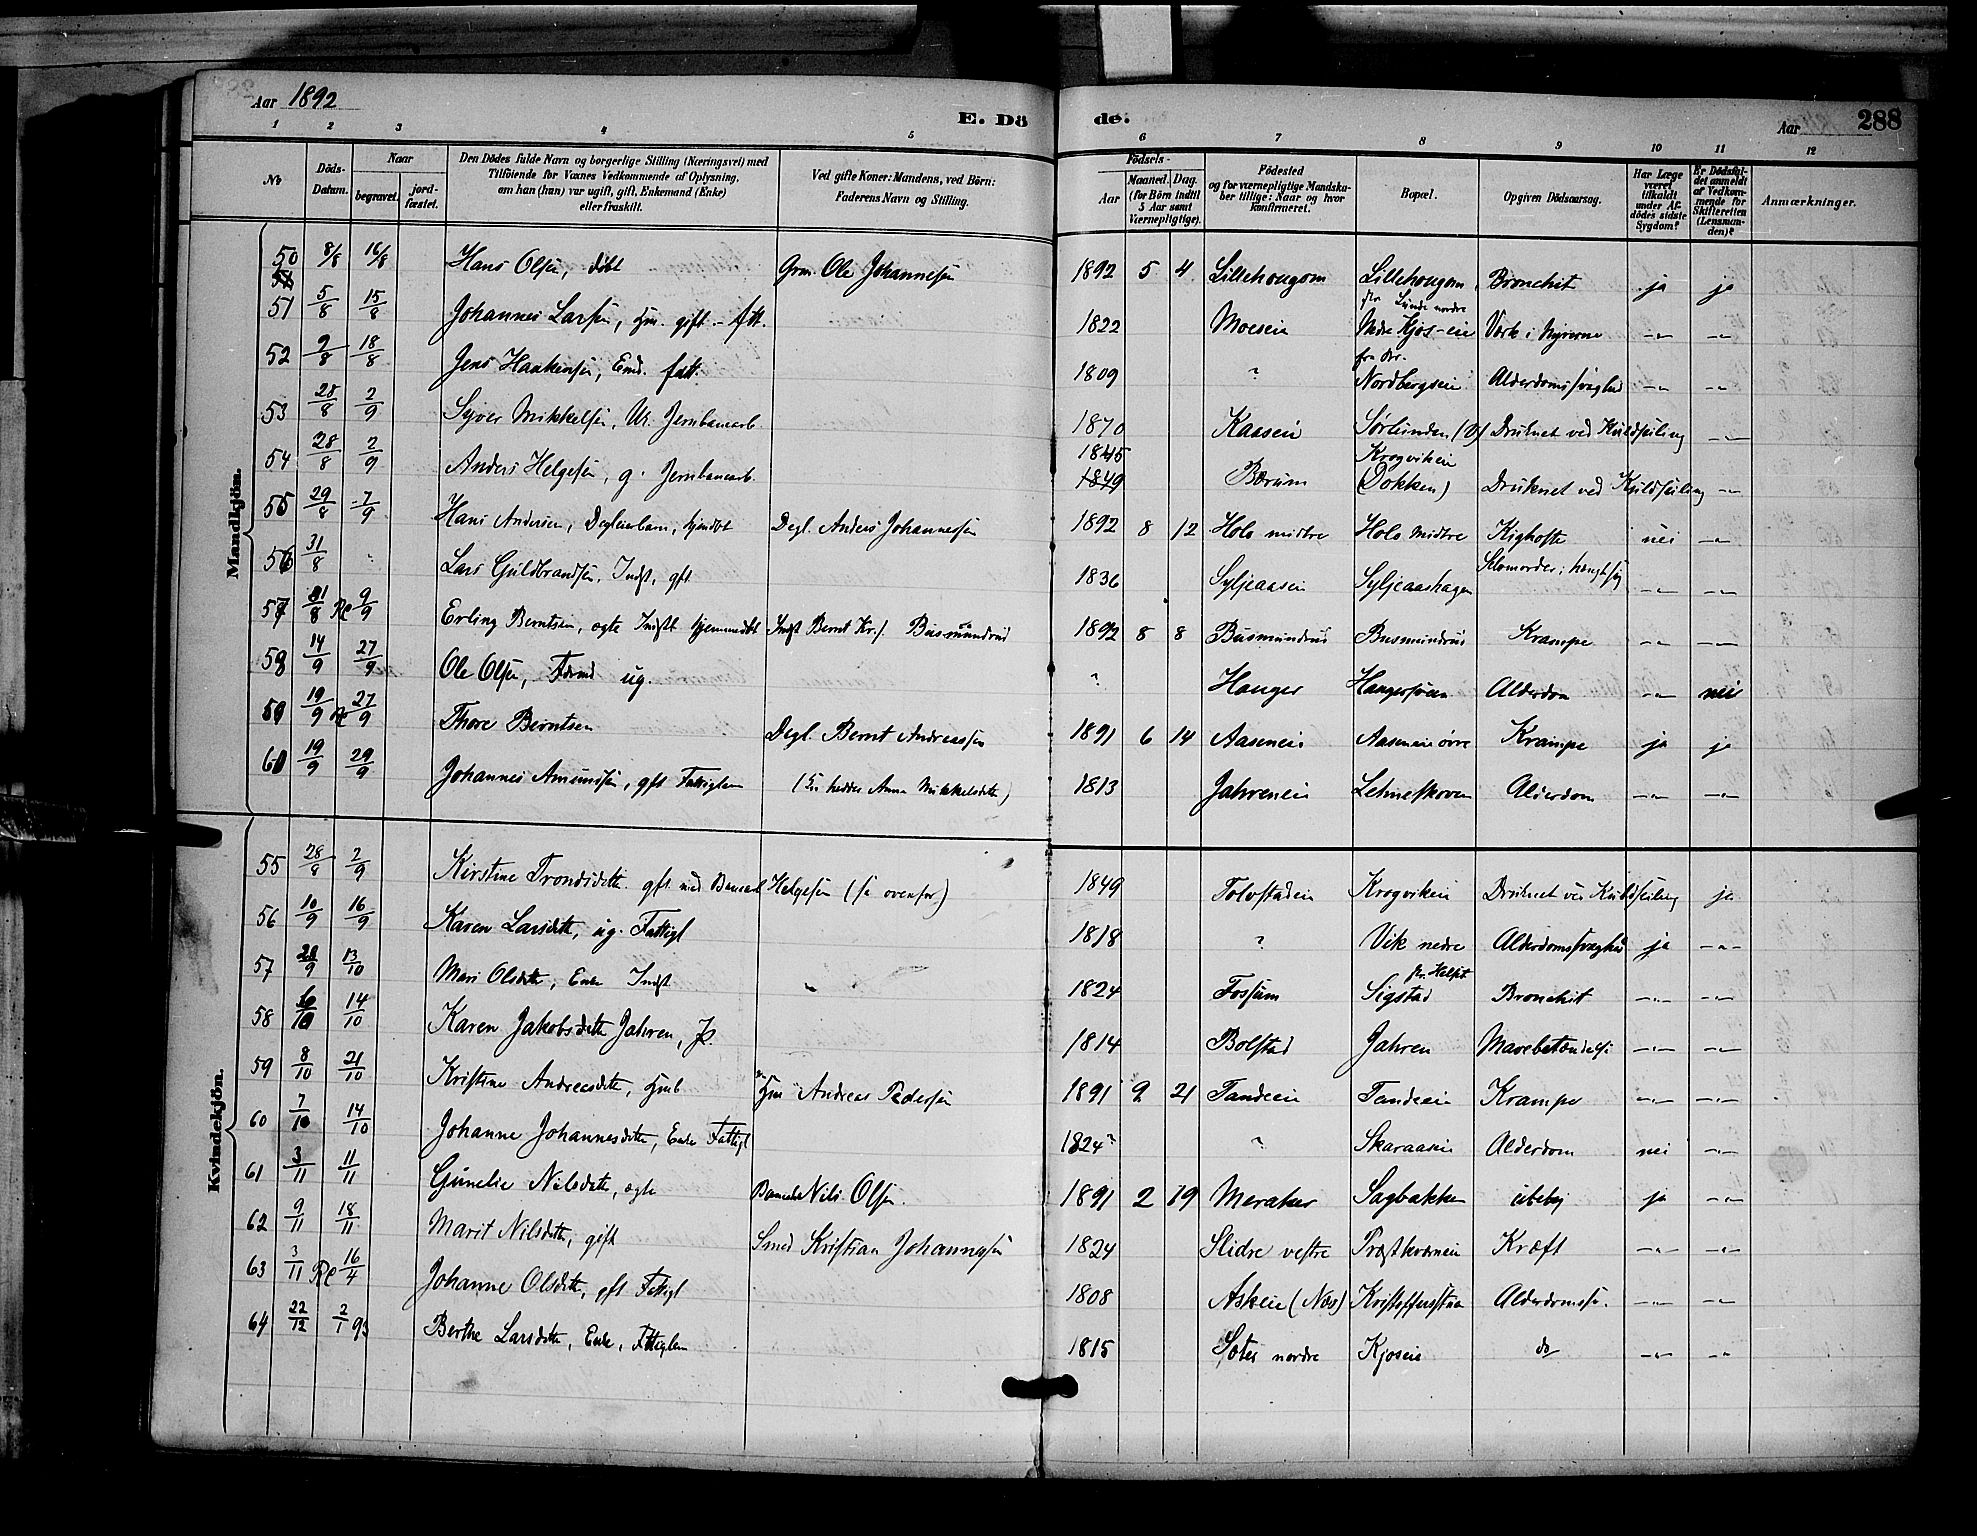 Aar 1892
E. Dö de.
Aar 288
1 2 3 4 5 6 7 8 9 10 11 12
№
Döds-Datum.
Naar
begravet.
jord-fæstet.
Den Dödes fulde Navn og borgerlige Stilling (Næringsvei) med Tilföiende for Voxnes Vedkommende af Oplysning, om han (hun) var ugift, gift, Enkemand (Enke) eller fraskilt.
Ved gifte Koner: Mandens, ved Börn: Faderens Navn og Stilling.
Födsels-
Aar
Maaned. Dag.
(for Börn indtil 5 Aar samt Værnepligtige).
Födested og for værnepligtige Mandskaber tillige: Naar og hvor konfirmeret.
Bopæl.
Opgiven Dödsaarsag.
Har Læge været tilkaldt under Afdödes sidste Sygdom?
Er Dödsfaldet anmeldt af Vedkommende for Skifteretten (Lensmanden)?
Anmærkninger.
Mandkjön.
50 8/8 16/8 Hans Olsen, döbt Grm. Ole Johannesen 1892 5 4 Lillehougom Lillehougom Bronchit ja ja
51 5/8 15/8 Johannes Larsen, Hm. gift - ftt. 1822 Moseie Nedre Kjos-eie fra Lunde nordre Værk i Nyrerne -"- -"-
52 9/8 18/8 Jens Haakensen, Enm. fatt. 1809 ? Nordbergseie Alderdomssvaghed -"- -"-
53 28/8 2/9 Syver Mikkelsen, Uk. Jernbanearb. 1870 Kaaseie Sørlunden (V) Druknet ved Kuldseiling -"-
54 28/8 2/9 Anders Helgesen, g. Jernbanearb. 1845 1849 Bærum Krogvikeie (Dokken) Druknet ved Kuldseiling -"-
55 29/8 7/9 Hans Andersen, Degleierbarn, hjmdbt Degl. Anders Johannessen 1892 8 12 Holo midtre Holo midtre Kighoste nei -"-
56 31/8 Lars Guldbrandsen, Indst, gft 1836 Syljeaasen Syljeaashagen Selvmorder; hængt sig -"- -"-
57 31/8 Re 9/9 Erling Berntsen, ægte Indst hjemmedbt Indst Bernt Kr.s. Busmundrud 1892 8 8 Busmundrud Busmundrud Krampe -"- -"-
58 14/9 27/9 Ole Olsen, ug. ? Hanger Alderdom -"- nei
59 19/9 Re 27/9 Thore Berntsen Degl. Bernt Andreassen 1891 6 14 Aaseneie Aaseneie övre Krampe ja ja
60 19/9 29/9 Johannes Amundsen, gft Fattiglem (En hedder Anna Mikkelsdtr) 1813 Jahreneie Lehneskoven Alderdom -"- -"-
Kvindekjön.
55 28/8 2/9 Kirstine Trondsdtr. gft med Banearb Helgesen (se ovenfor) 1849 Tolvstadeie Krogvikeie Druknet ved Kuldseiling ja
56 10/9 16/9 Karen Larsdtr, ug. Fattigl 1818 ? Vik nedre Alderdomssvaghed ja -"-
57 28/9 13/10 Mari Olsdtr, Enke Indst 1824 Fossum Sigstad Bronchit -"- -"-
58 6/10 14/10 Karen Jakobsdtr Jahren, 1814 Bolstad Jahren Mavebetændelse -"- -"-
59 8/10 21/10 Kristine Andreasdtr, Hmb Hm Andreas Pedersen 1891 9 21 Tandeeie Tandeeie Krampe -"- -"-
60 7/10 14/10 Johanne Johannesdtr, Enke Fattigl 1824? ? Skaraaseie Alderdom nei -"-
61 3/11 11/11 Gunelie Nilsdtr, ægte Nils Olsen. 1891 2 19 Meraker Sagbakken ubeky ja -"-
62 9/11 18/11 Marit Nilsdtr, gift Smed Kristian Johannesen 1824 Slidre vestre Kræft -"- -"-
63 3/11 Re 16/4 Johanne Olsdtr, gft Fattigl 1808 Askeie (Næs) Kristoffersstua Alderdomssv. -"- -"-
64 22/12 2/1 93 Berthe Larsdtr, Enke, Fattiglem 1815 Soter nordre Kjoseie do -"- -"-